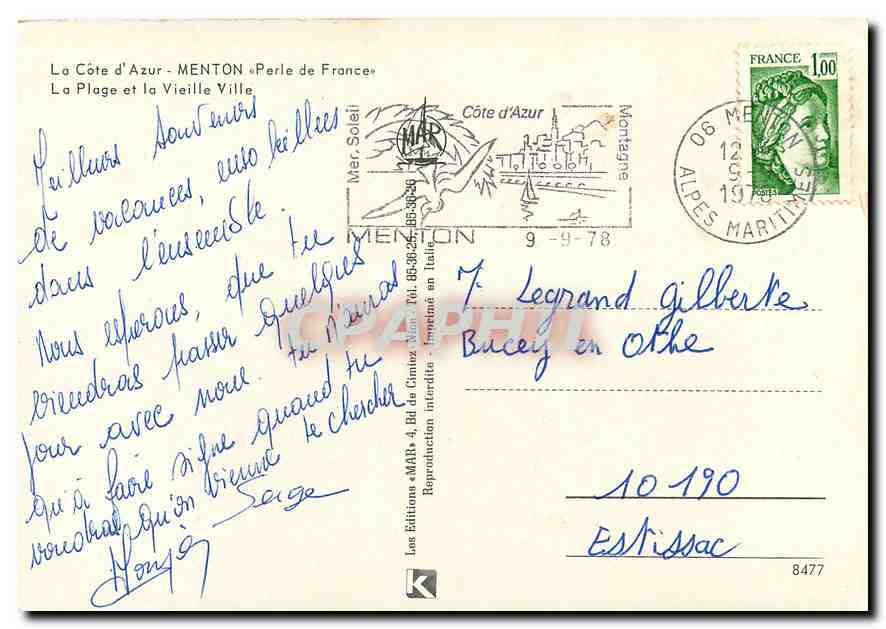 La Côte d'Azur - MENTON «Perle de France»
La Plage et la Vieille Ville
Meilleurs souvenirs
de vacances, ensoleillées
dans l'ensemble.
Nous espérons, que tu
viendras passer quelques
jour avec nous. tu n'auras
qu'à faire signe quand tu
voudras qu'on vienne te chercher
Serge
Mer, Soleil
MAR
Côte d'Azur
Montagne
MENTON
9 -9-78
FRANCE
1,00
POSTES
06 MENTON
12
9-
197
ALPES MARITIMES
Les Editions «MAR» 4, Bd de Cimiez - Nice - Tél. 85-36-25 - 85-36-26
Reproduction interdite - Imprimé en Italie
CPAPHIL
Legrand Gilberte
Bucey en Othe
10190
Estissac
K
8477